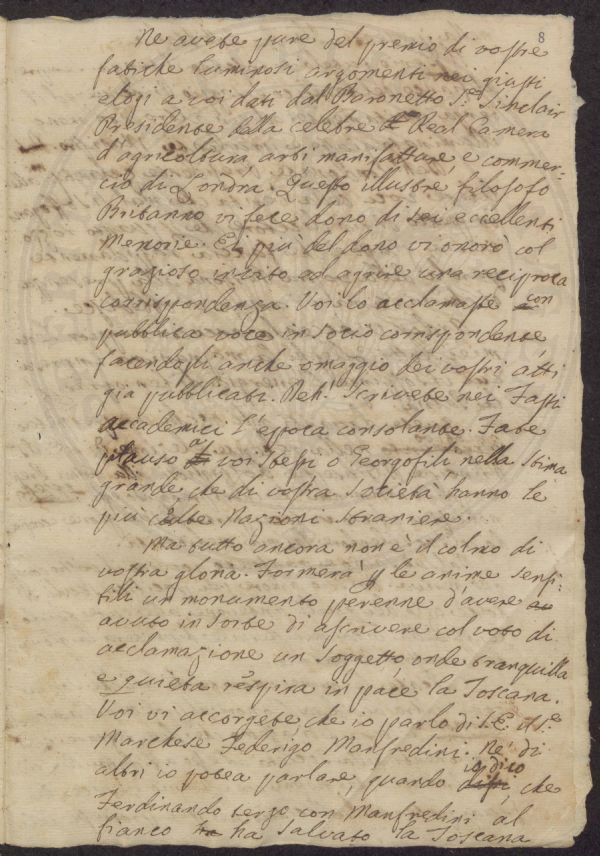 8
Ne avete pure del premio di vostre
fatiche luminosi argomenti nei giusti
elogi a voi dati dal Baronetto Sr. Sinclair
Presidente della celebre Real Camera
d'agricoltura, arti manifatture, e commer-
cio di Londra. Questo illustre filosofo
Britanno vi fece dono di sei eccellenti
memorie. E più del dono vi onorò col
grazioso invito ad aprire una reciproca
corrispondenza. Voi lo acclamaste con
pubblica voce in socio corrispondente
facendogli anche omaggio dei vostri atti
già pubblicati. Deh! Scrivete nei Fasti
accademici l'epoca consolante. Fate
plauso a voi stessi o Georgofili nella stima
grande che di vostra società hanno le
più colte Nazioni straniere.
Ma tutto ancora non è il colmo di
vostra gloria. Formerà p le anime sensi-
bili un monumento perenne d'avere
avuto in sorte di ascrivere col voto di
acclamazione un soggetto, onde tranquilla
e quieta respira in pace la Toscana.
Voi vi accorgete, che io parlo di S.E. il Sr.
Marchese Federigo Manfredini. Nè di
altri io potea parlare, quando io dico, che
Ferdinando terzo con Manfredini al
fianco ha salvato la Toscana